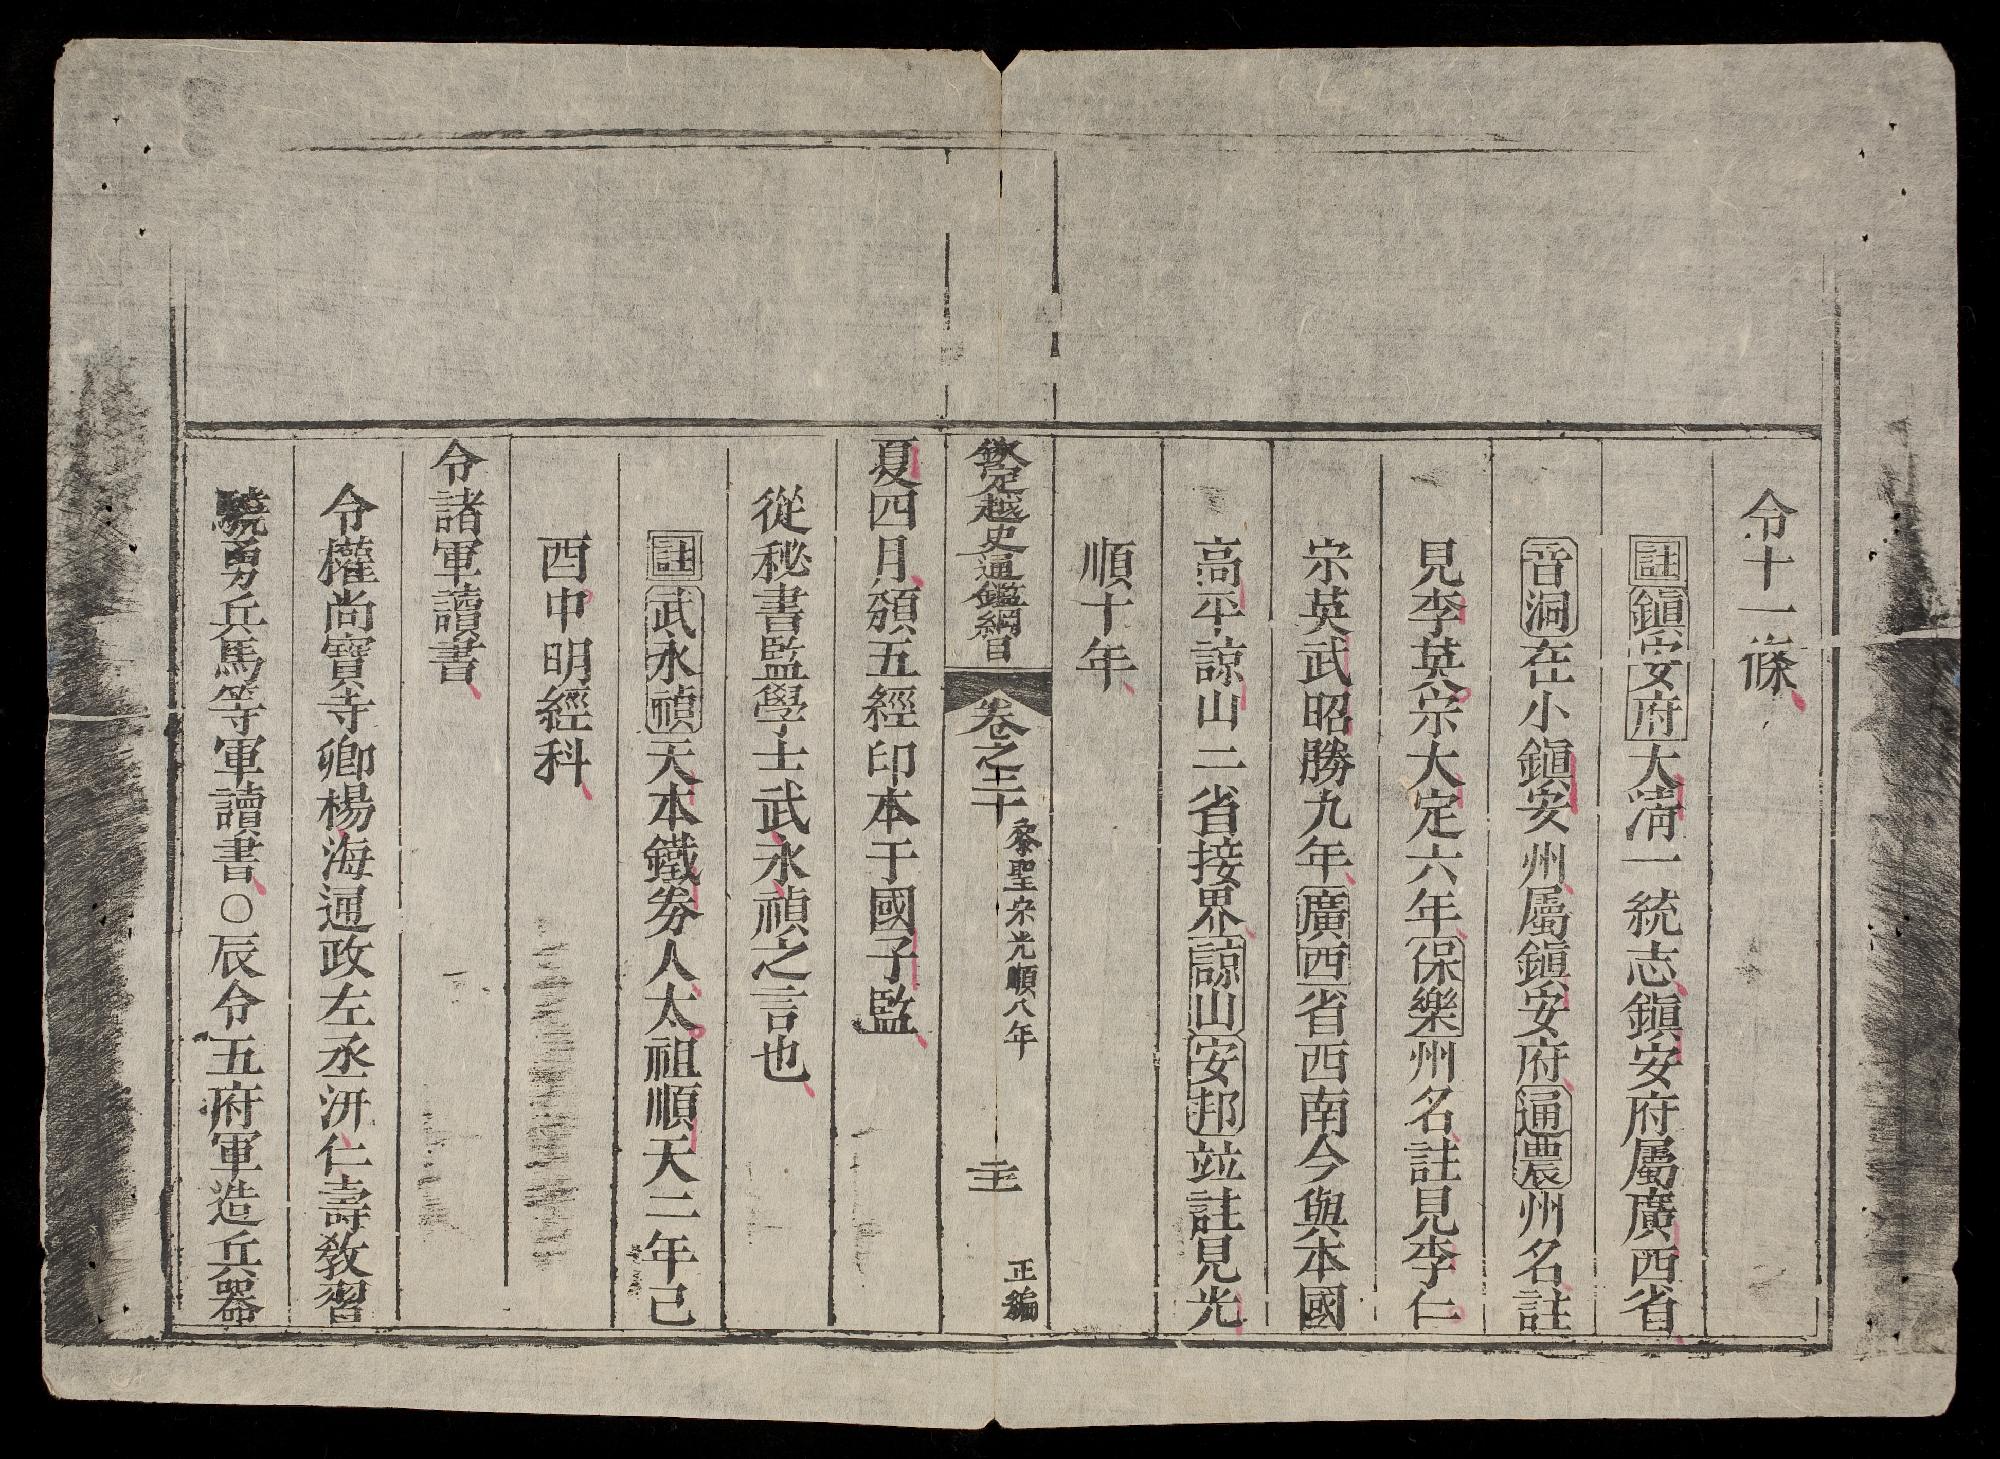 令十一條
註鎮安府大淸一統志鎮安府屬廣西省
音洞在小鎮安州屬鎮安府通農州名註
見李英宗大定六年保樂州名註見李仁
宗英武昭勝九年廣西省西南今與本國
高平諒山二省接界諒山安邦竝註見光
順十年
欽定越史通鑑綱目
卷之二十
黎聖宗光順八年
正編
夏四月頒五經印本于國子監
從秘書監學士武永禎之言也
註武永禎天本鐵券人太祖順天二年己
酉中明經科
令諸軍讀書
令權尚寶寺卿楊海通政左丞汧仁壽教習
驍勇兵馬等軍讀書○辰令五府軍造兵器